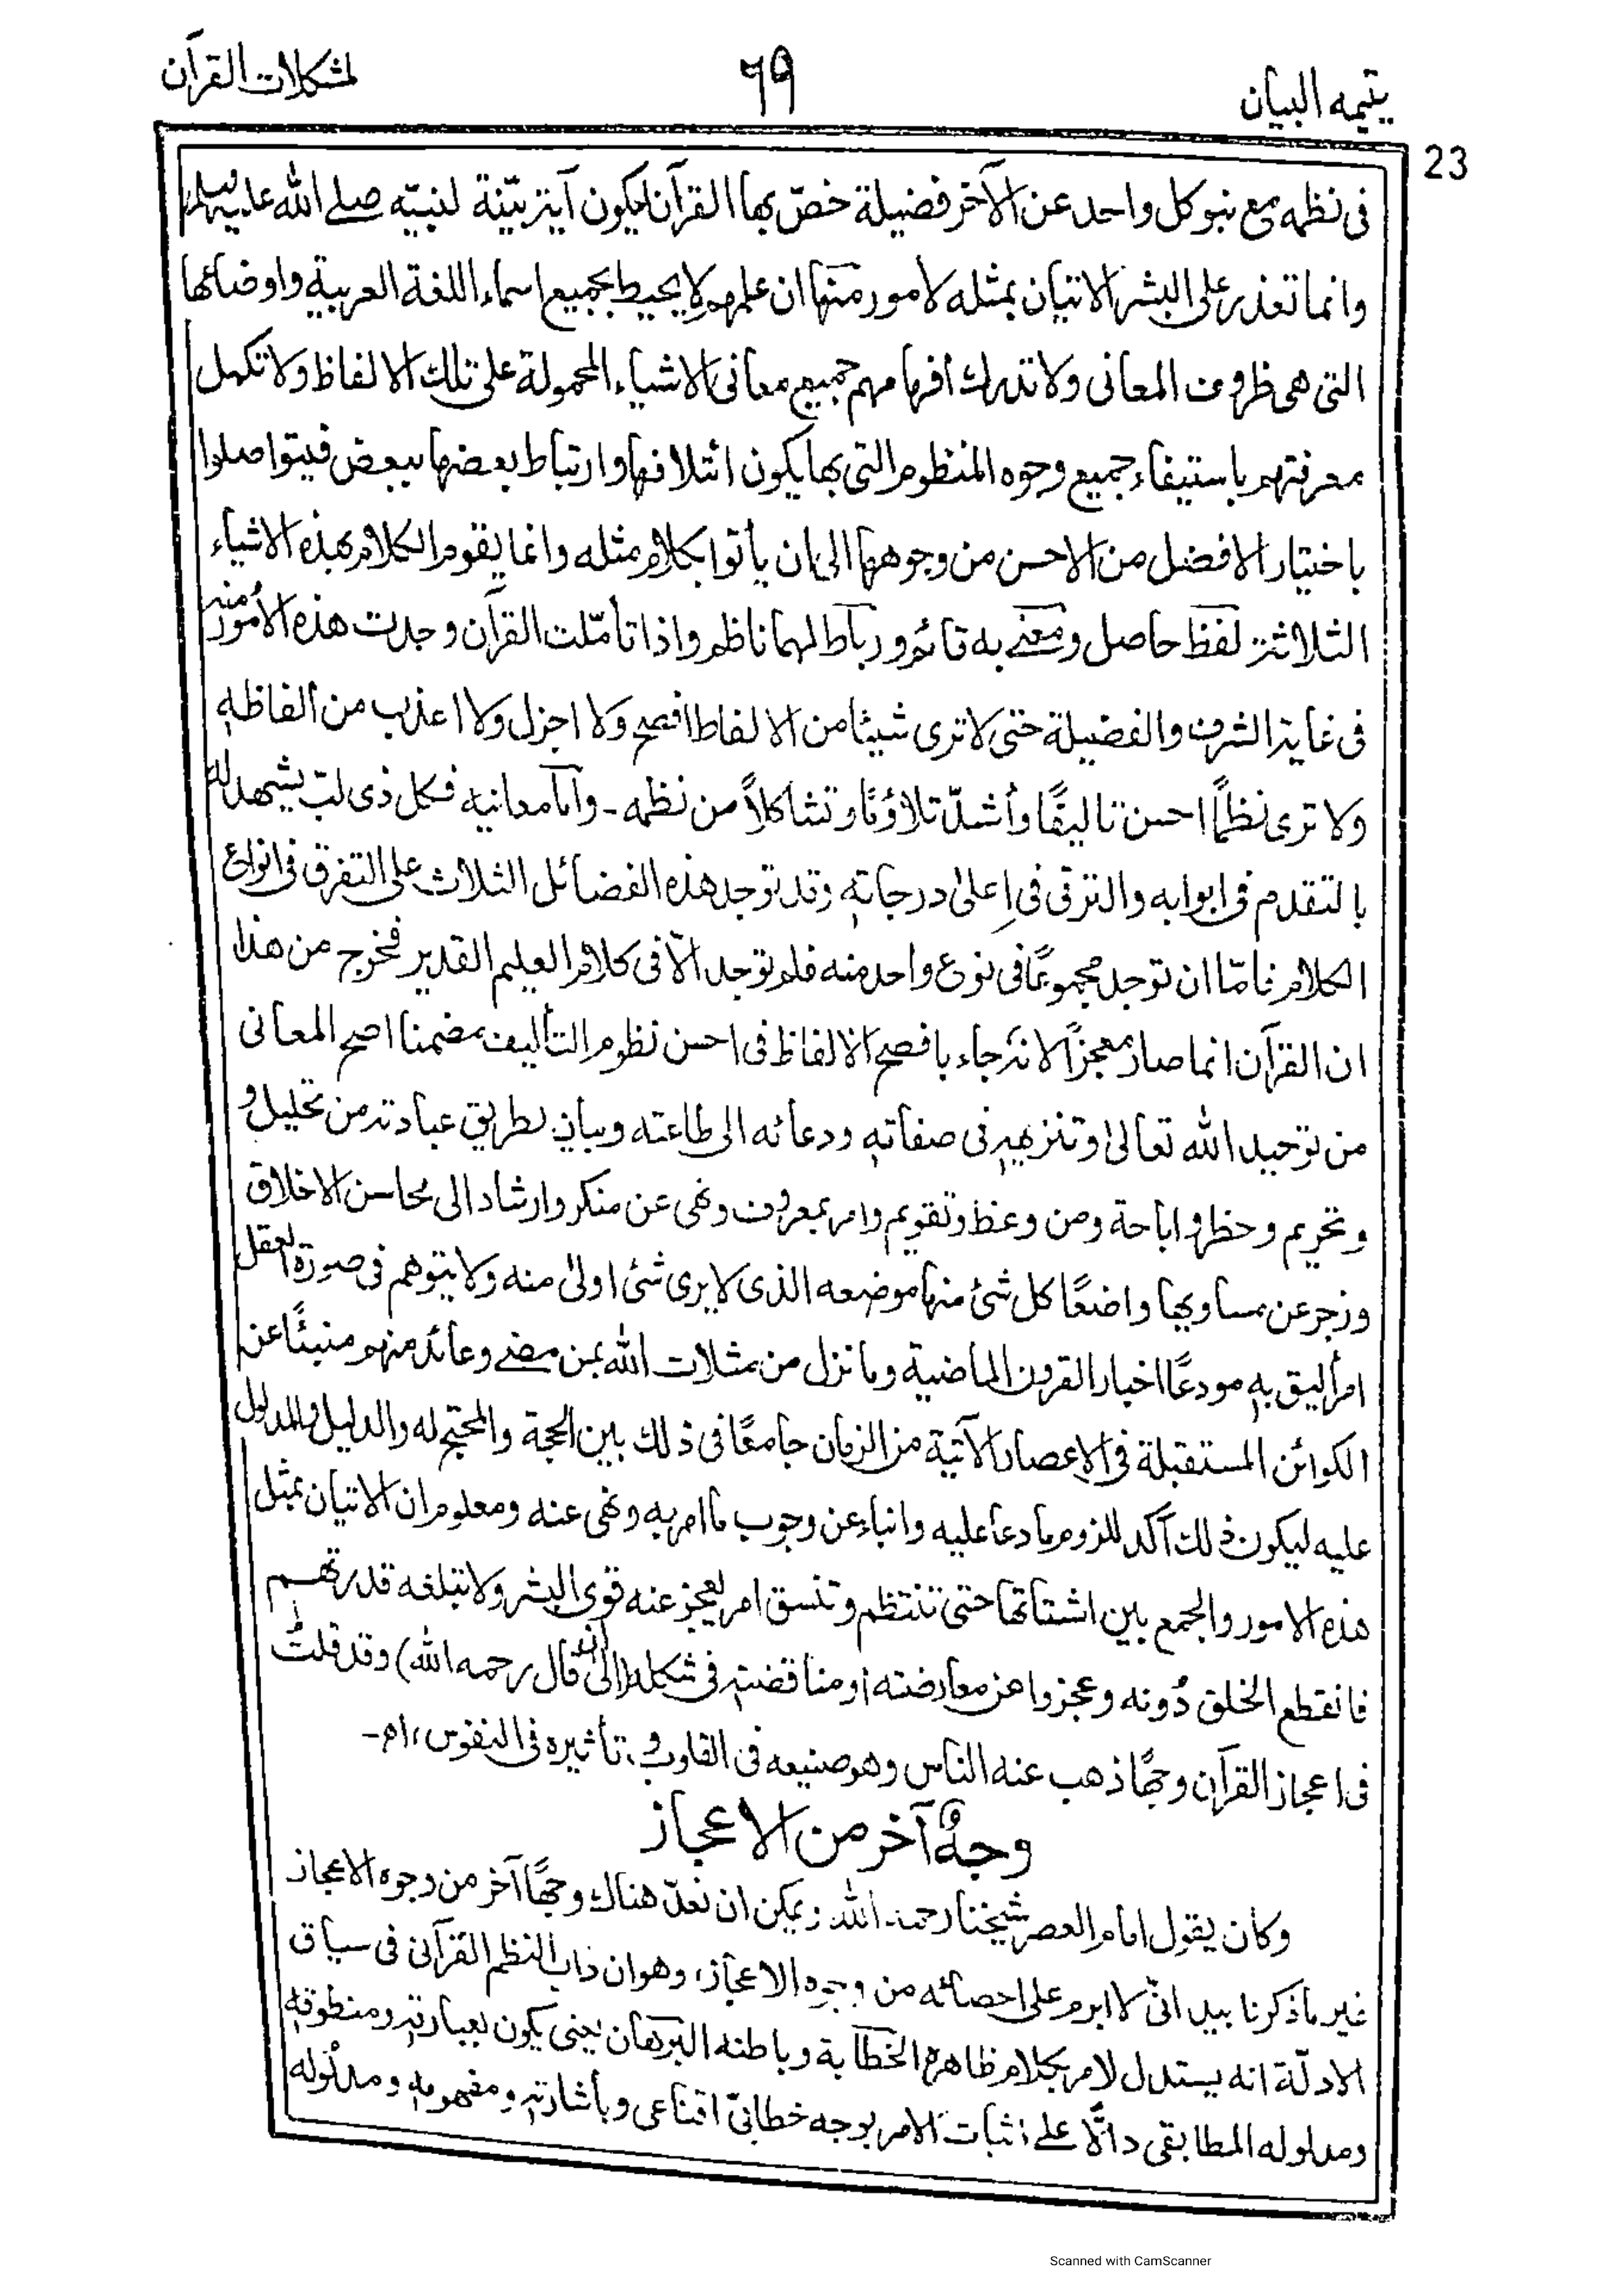 يتيمه البيان
٦٩
لمشكلات القرآن
23
فى نظمه مع نبو كل واحد عن الآخر فضيلة خصّ بها القرآن ليكون آية بيّنة لنبيّه صلے الله عليه وسلم
وانما تعذر على البشر الاتيان بمثله لامور منها ان علمهم لا يحيط بجميع اسماء اللغة العربية واوضاعها
التى هى ظروف المعانى ولا تدرك أفهامهم جميع معانى الاشياء المحمولة على تلك الالفاظ ولا تكمل
معرفتهم باستيفاء جميع وجوه المنظوم التى بها يكون ائتلافها وارتباط بعضها ببعض فيتواصلوا
باختيار الافضل من الاحسن من وجوهها الى ان يأتوا بكلام مثله وانما يقوم الكلام بهذه الاشياء
الثلاثة لفظ حاصل ومعنے به قائم ورباط لهما ناظم واذا تأمّلت القرآن وجدت هذه الأمور منه
فى غاية الشرف والفضيلة حتى لا ترى شيئا من الالفاظ افصح ولا اجزل ولا اعذب من الفاظهٖ
ولا ترى نظمًا احسن تاليفًا وأشدّ تلاؤمًا وتشاكلاً من نظمه ـ وأمّا معانيه فكل ذى لبّ يشهد له
بالتقدم فى ابوابه والترقى فى اعلىٰ درجاتهٖ وقد توجد هذه الفضائل الثلاث على التفرق فى انواع
الكلام فأمّا ان توجد مجموعًا فى نوع واحد منه فلم توجد الّا فى كلام العليم القدير فخرج من هذا
ان القرآن انما صار معجزاً لانه جاء بافصح الالفاظ فى احسن نظوم التأليف مضمنا اصح المعانى
من توحيد الله تعالىٰ وتنزيهٖهٖ فى صفاتهٖ ودعائه الى طاعته وبيانٍ لطريق عبادته من تحليل و
وتحريم وحظر واباحة ومن وعظ وتقويم وامر بمعروف ونهى عن منكر وارشاد الى محاسن الاخلاق
وزجر عن مساويها واضعًا كل شئ منها موضعه الذى لا يرى شئ اولىٰ منه ولا يتوهم فى صورة العقل
امر أليق بهٖ مودعًا اخبار القرون الماضية وما نزل من مثلات الله بمن مضے وعاند منهم منبئًا عن
الكوائن المستقبلة فى الاعصار الآتية من الزمان جامعًا فى ذلك بين الحجة والمحتج له والدليل والمدلول
عليه ليكون ذلك آكد للزوم ما دعا عليه وانباء عن وجوب ما امر به ونهى عنه ومعلوم ان الاتيان بمثل
هذه الامور والجمع بين اشتاتها حتى تنتظم وتتسق امر لعجز عنه قوى البشر ولا تبلغه قدرتهم
فانقطع الخلق دُونه وعجزوا عن معارضته أو مناقضتهٖ فى شكله (الى ان قال رحمه الله) وقد قلتُ
فى اعجاز القرآن وجهًا ذهب عنه الناس وهو صنيعه فى القلوب و تأثيره فى النفوس، اه ـ
وجهٌ آخر من الاعجاز
وكان يقول امام العصر شيخنا رحمه الله ويمكن ان نعدّ هناك وجهًا آخر من وجوه الاعجاز
غير ما ذكرنا بيد انّى لا ابرم على احصائه من وجوه الاعجاز، وهو ان دأب النظم القرآنى فى سياق
الادلّة انه يستدل لامر بكلام ظاهره الخطابة وباطنه البرهان يعنى يكون بعبارتهٖ ومنطوقهٖ
ومدلوله المطابقى دالًّا على اثبات الامر بوجه خطابىّ اقناعى وبأشارتهٖ ومفهومهٖ ومدلُوله
Scanned with CamScanner